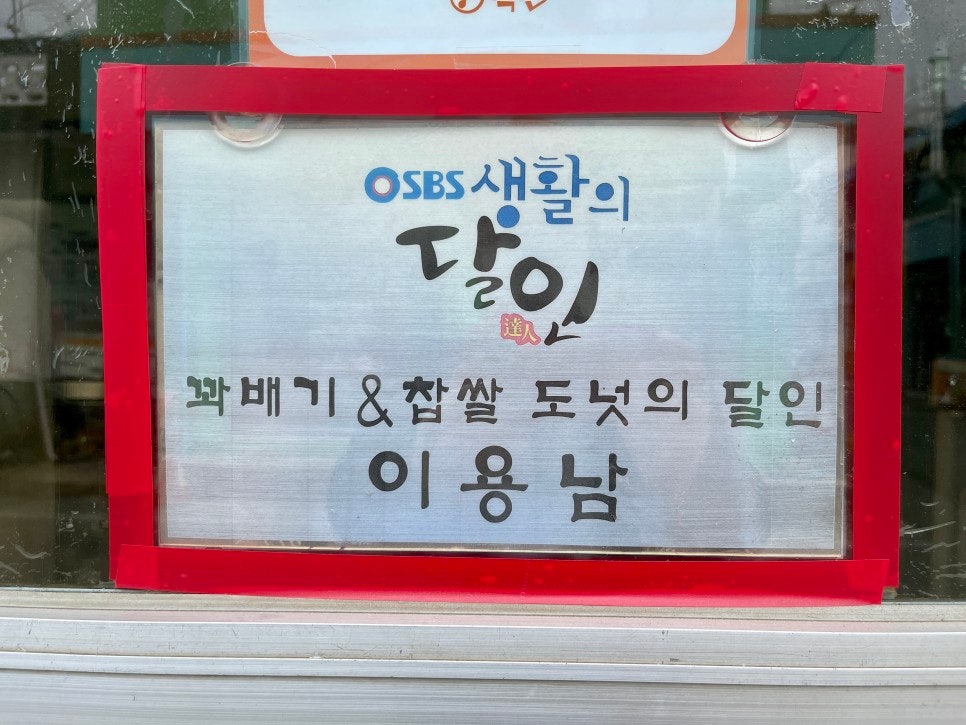 SBS 생활의
달인
達人
꽈배기 & 찹쌀 도넛의 달인
이용남